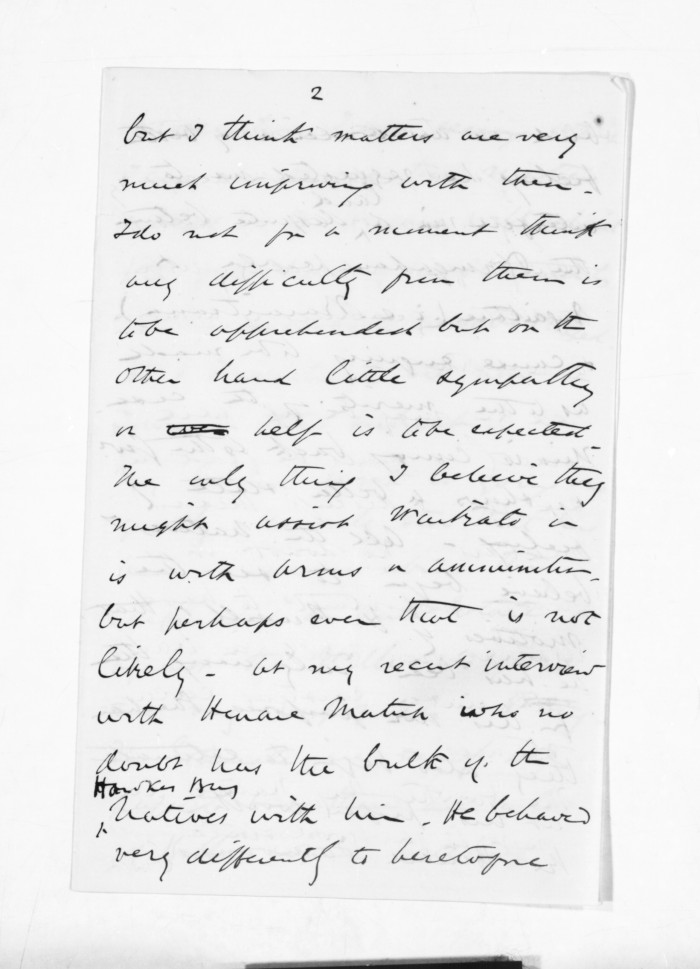 2
but I think matters are very
much improving with them -
I do not for a moment think
any difficulty from them is
to be apprehended but on the
other hand little sympathy
or help is to be expected -
The only thing I believe they
might assist Waikato in
is with arms or ammunition -
but perhaps even that is not
likely - at my recent interview
with Henare Matua who no
doubt has the bulk of the
Hawkes Bay
Natives with him. He behaved
very differently to heretofore